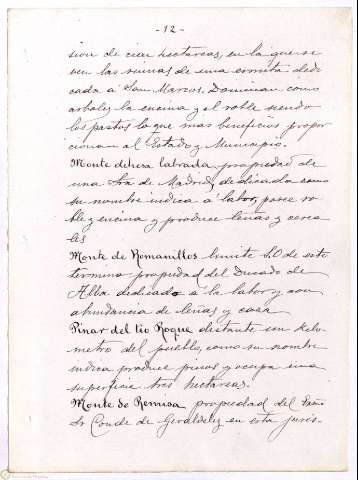 -12-
sion de cien hectareas, en la que se
ven las ruinas de una ermita dedi
cada á San Marcos. Dominan como
arboles la encina y el roble siendo
los pastos lo que mas beneficios propor
cionan al Estado y Municipio.
Monte dehesa labrada, propiedad de
una Sra de Madrid, dedicada como
su nombre indica á labor, posee ro
ble y encina y produce leñas y cerea
les
Monte de Romanillos limite SO de este
termino propiedad del Ducado de
Alba dedicado á la labor y con
abundancia de leñas y caza
Pinar del tio Roque distante un kilo
metro del pueblo, como su nombre
indica produce pinos y ocupa una
superficie tres hectareas.
Monte de Remisa propiedad del
Sr Conde de Geraldeli en esta juris-